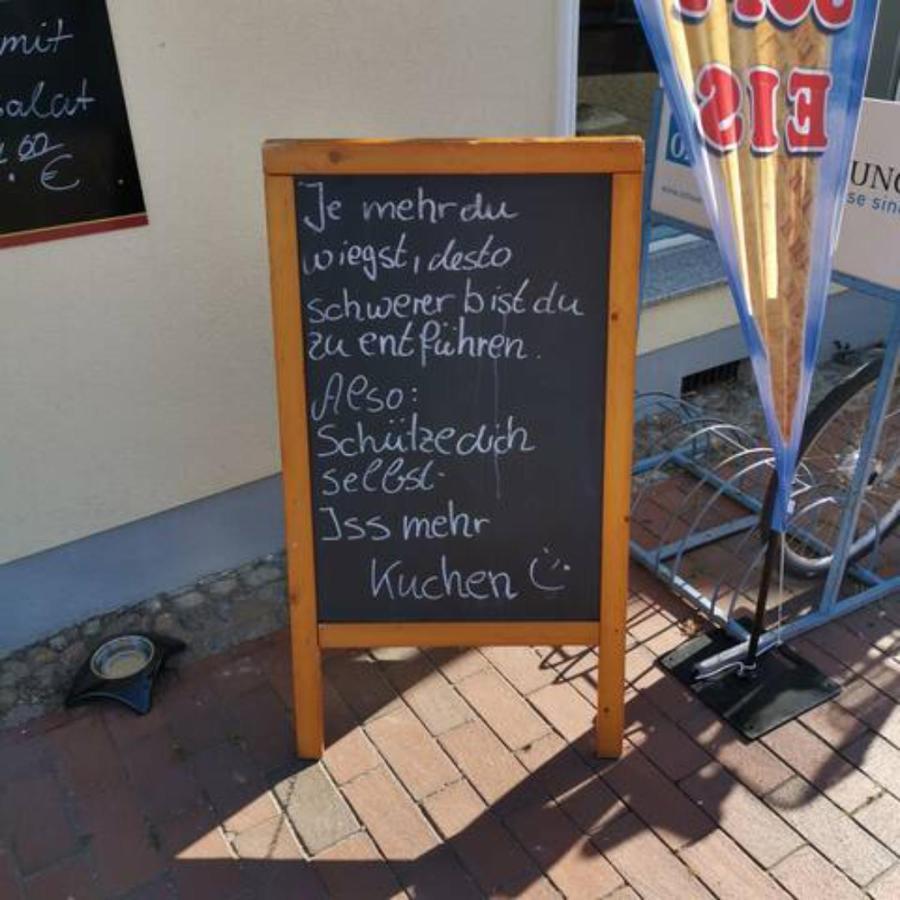 mit
salat
€
Je mehr du
wiegst, desto
schwerer bist du
zu entführen.
Also:
Schütze dich
selbst.
Iss mehr
Kuchen
SOFT
EIS
UNG
se sind